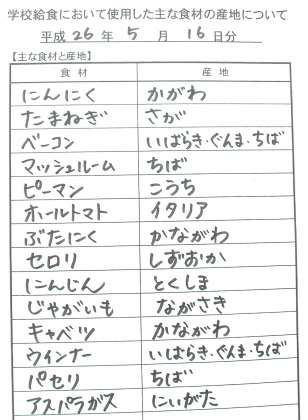 学校給食において使用した主な食材の産地について
平成 26 年 5 月 16 日分
【主な食材と産地】
食材 産地
にんにく かがわ
たまねぎ さが
ベーコン いばらき・ぐんま・ちば
マッシュルーム ちば
ピーマン こうち
ホールトマト イタリア
ぶたにく かながわ
セロリ しずおか
にんじん とくしま
じゃがいも ながさき
キャベツ かながわ
ウインナー いばらき・ぐんま・ちば
パセリ ちば
アスパラガス にいがた